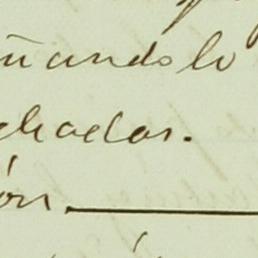 ñandolo
chadas.
ón.